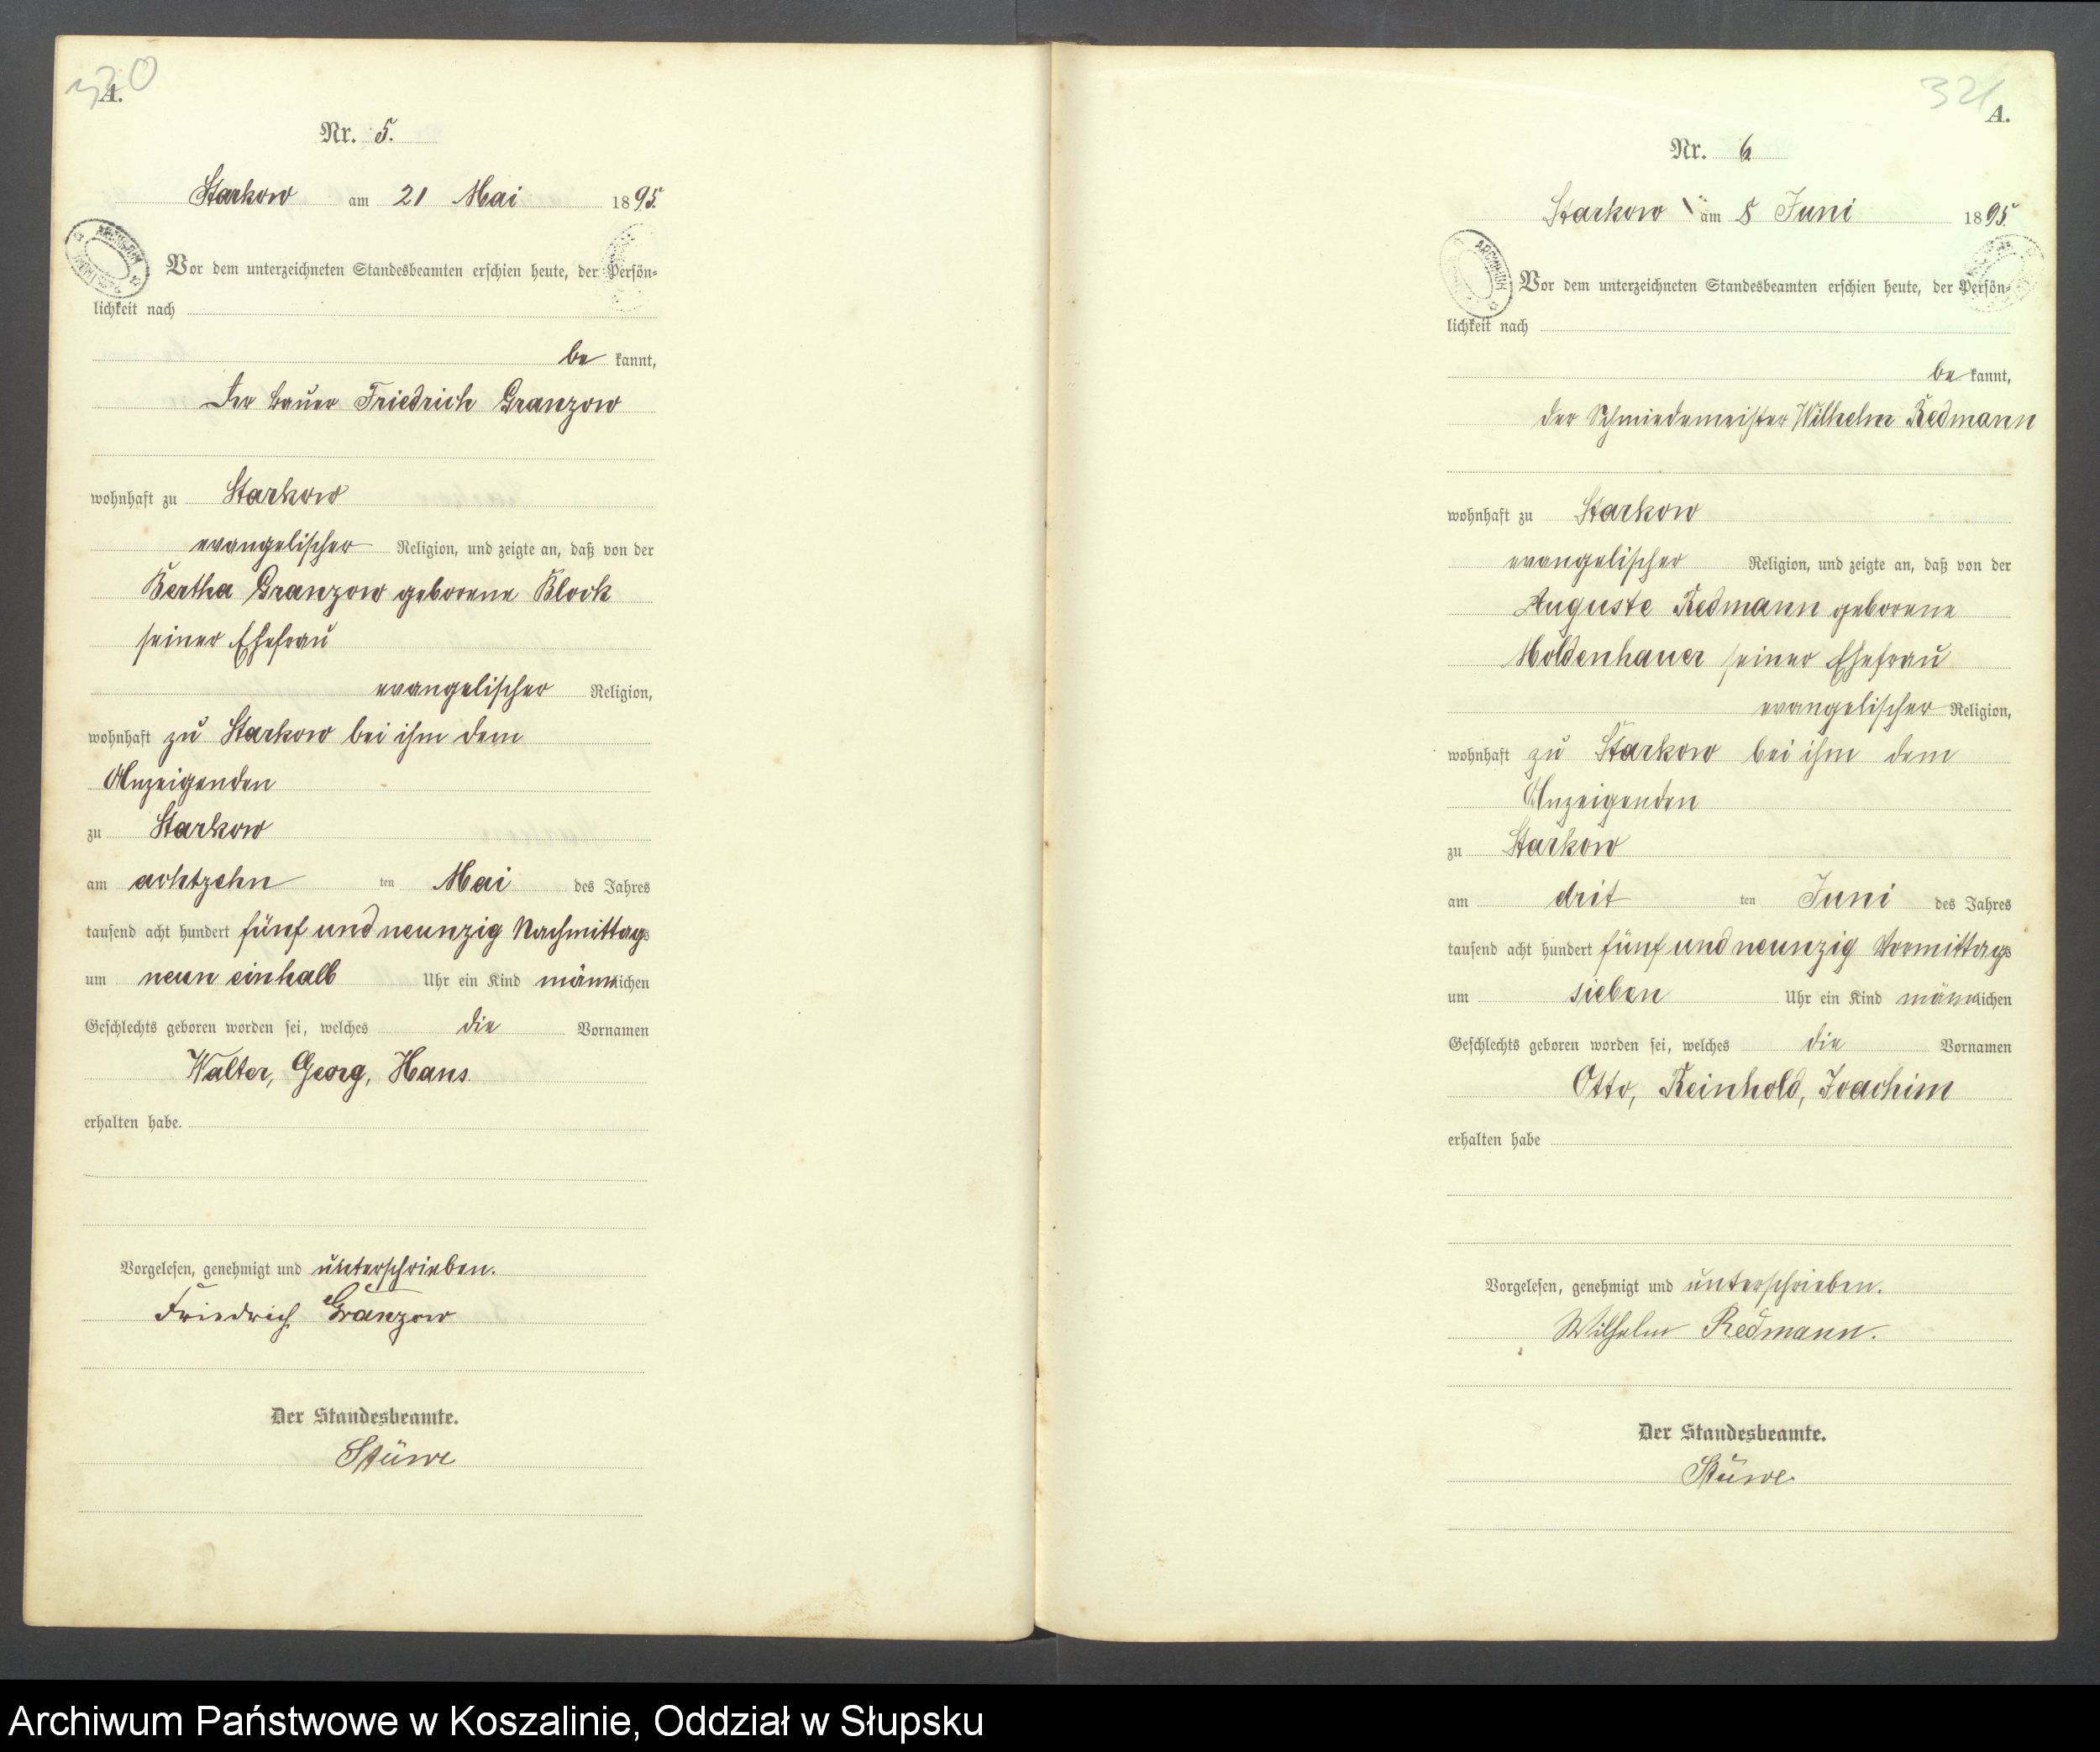 320
A.
Nr. 5.
Starkow am 21 Mai 1895.
Vor dem unterzeichneten Standesbeamten erschien heute, der Persön-
lichkeit nach
be kannt,
der Bauer Friedrich Granzow
wohnhaft zu Starkow
evangelischer Religion, und zeigte an, daß von der
Bertha Granzow geborene Block
seiner Ehefrau
evangelischer Religion,
wohnhaft zu Starkow bei ihm dem
Anzeigenden
zu Starkow
am achtzehn ten Mai des Jahres
tausend acht hundert fünf und neunzig Nachmittags
um neun einhalb Uhr ein Kind männlichen
Geschlechts geboren worden sei, welches die Vornamen
Walter, Georg, Hans
erhalten habe.
Vorgelesen, genehmigt und unterschrieben.
Friedrich Granzow
Der Standesbeamte.
Stüwe
321
A.
Nr. 6
Starkow am 8 Juni 1895.
ARCHIWUM
Vor dem unterzeichneten Standesbeamten erschien heute, der Persön-
lichkeit nach
be kannt,
der Schmiedemeister Wilhelm Redmann
wohnhaft zu Starkow
evangelischer Religion, und zeigte an, daß von der
Auguste Redmann geborene
Moldenhauer seiner Ehefrau
evangelischer Religion,
wohnhaft zu Starkow bei ihm dem
Anzeigenden
zu Starkow
am drit ten Juni des Jahres
tausend acht hundert fünf und neunzig Vormittags
um sieben Uhr ein Kind männlichen
Geschlechts geboren worden sei, welches die Vornamen
Otto, Reinhold, Joachim
erhalten habe
Vorgelesen, genehmigt und unterschrieben.
Wilhelm Redmann.
Der Standesbeamte.
Stüwe
Archiwum Państwowe w Koszalinie, Oddział w Słupsku